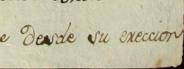 e desde su ereccion